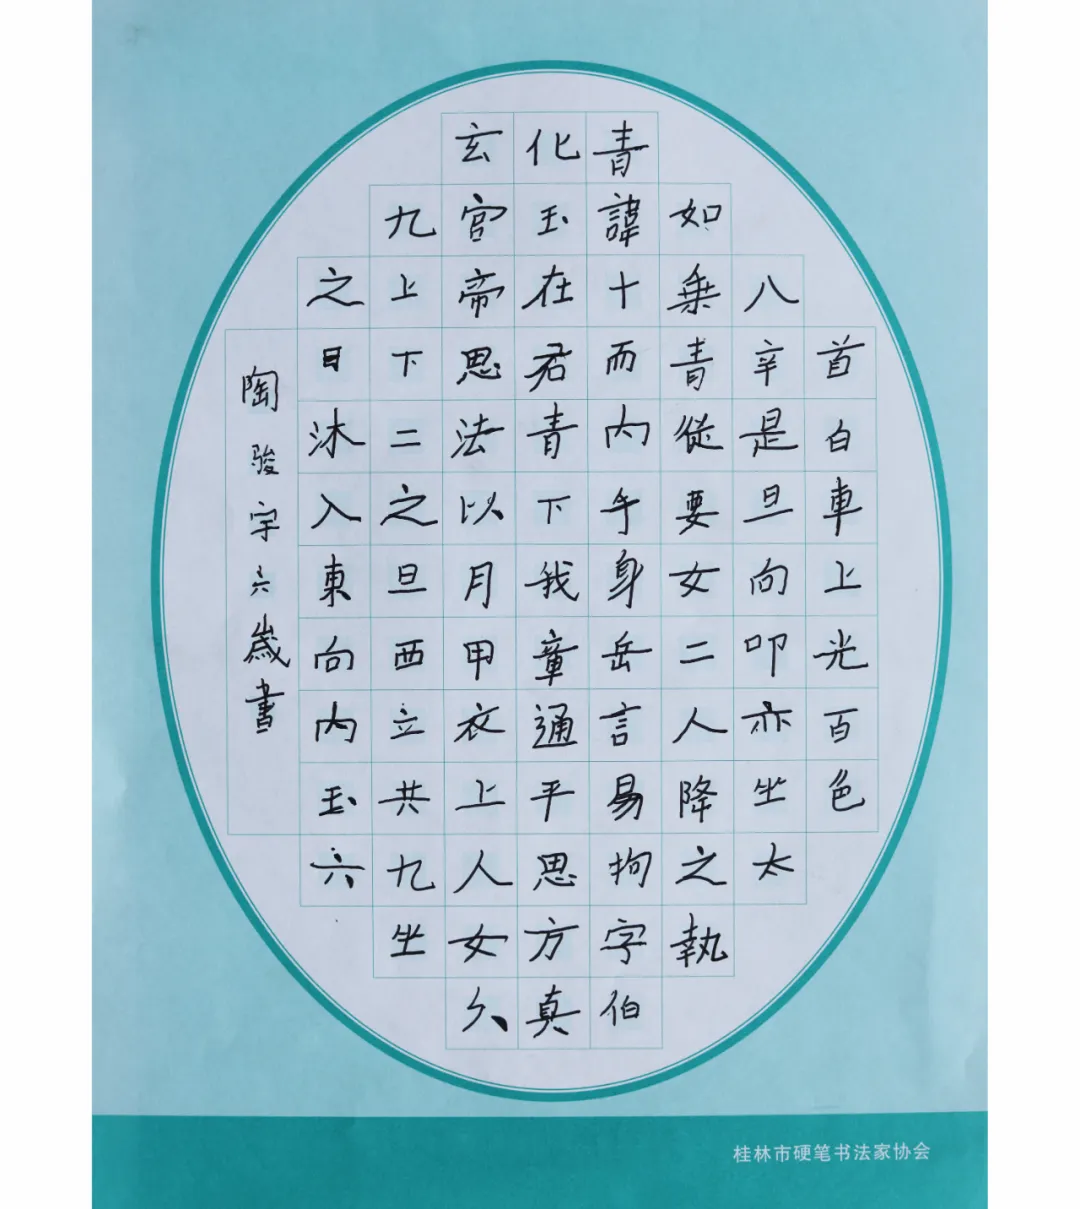 首白車上光百色
八辛是旦向叩亦坐太
如乗青從要女二人降之執
青諱十而内手身岳言易拘字伯
化玉在君青下我章通平思方真
玄宫帝思法以月甲衣上人女久
九上下二之旦西立共九坐
之日沐入東向内玉六
陶骏宇六歲書
桂林市硬笔书法家协会